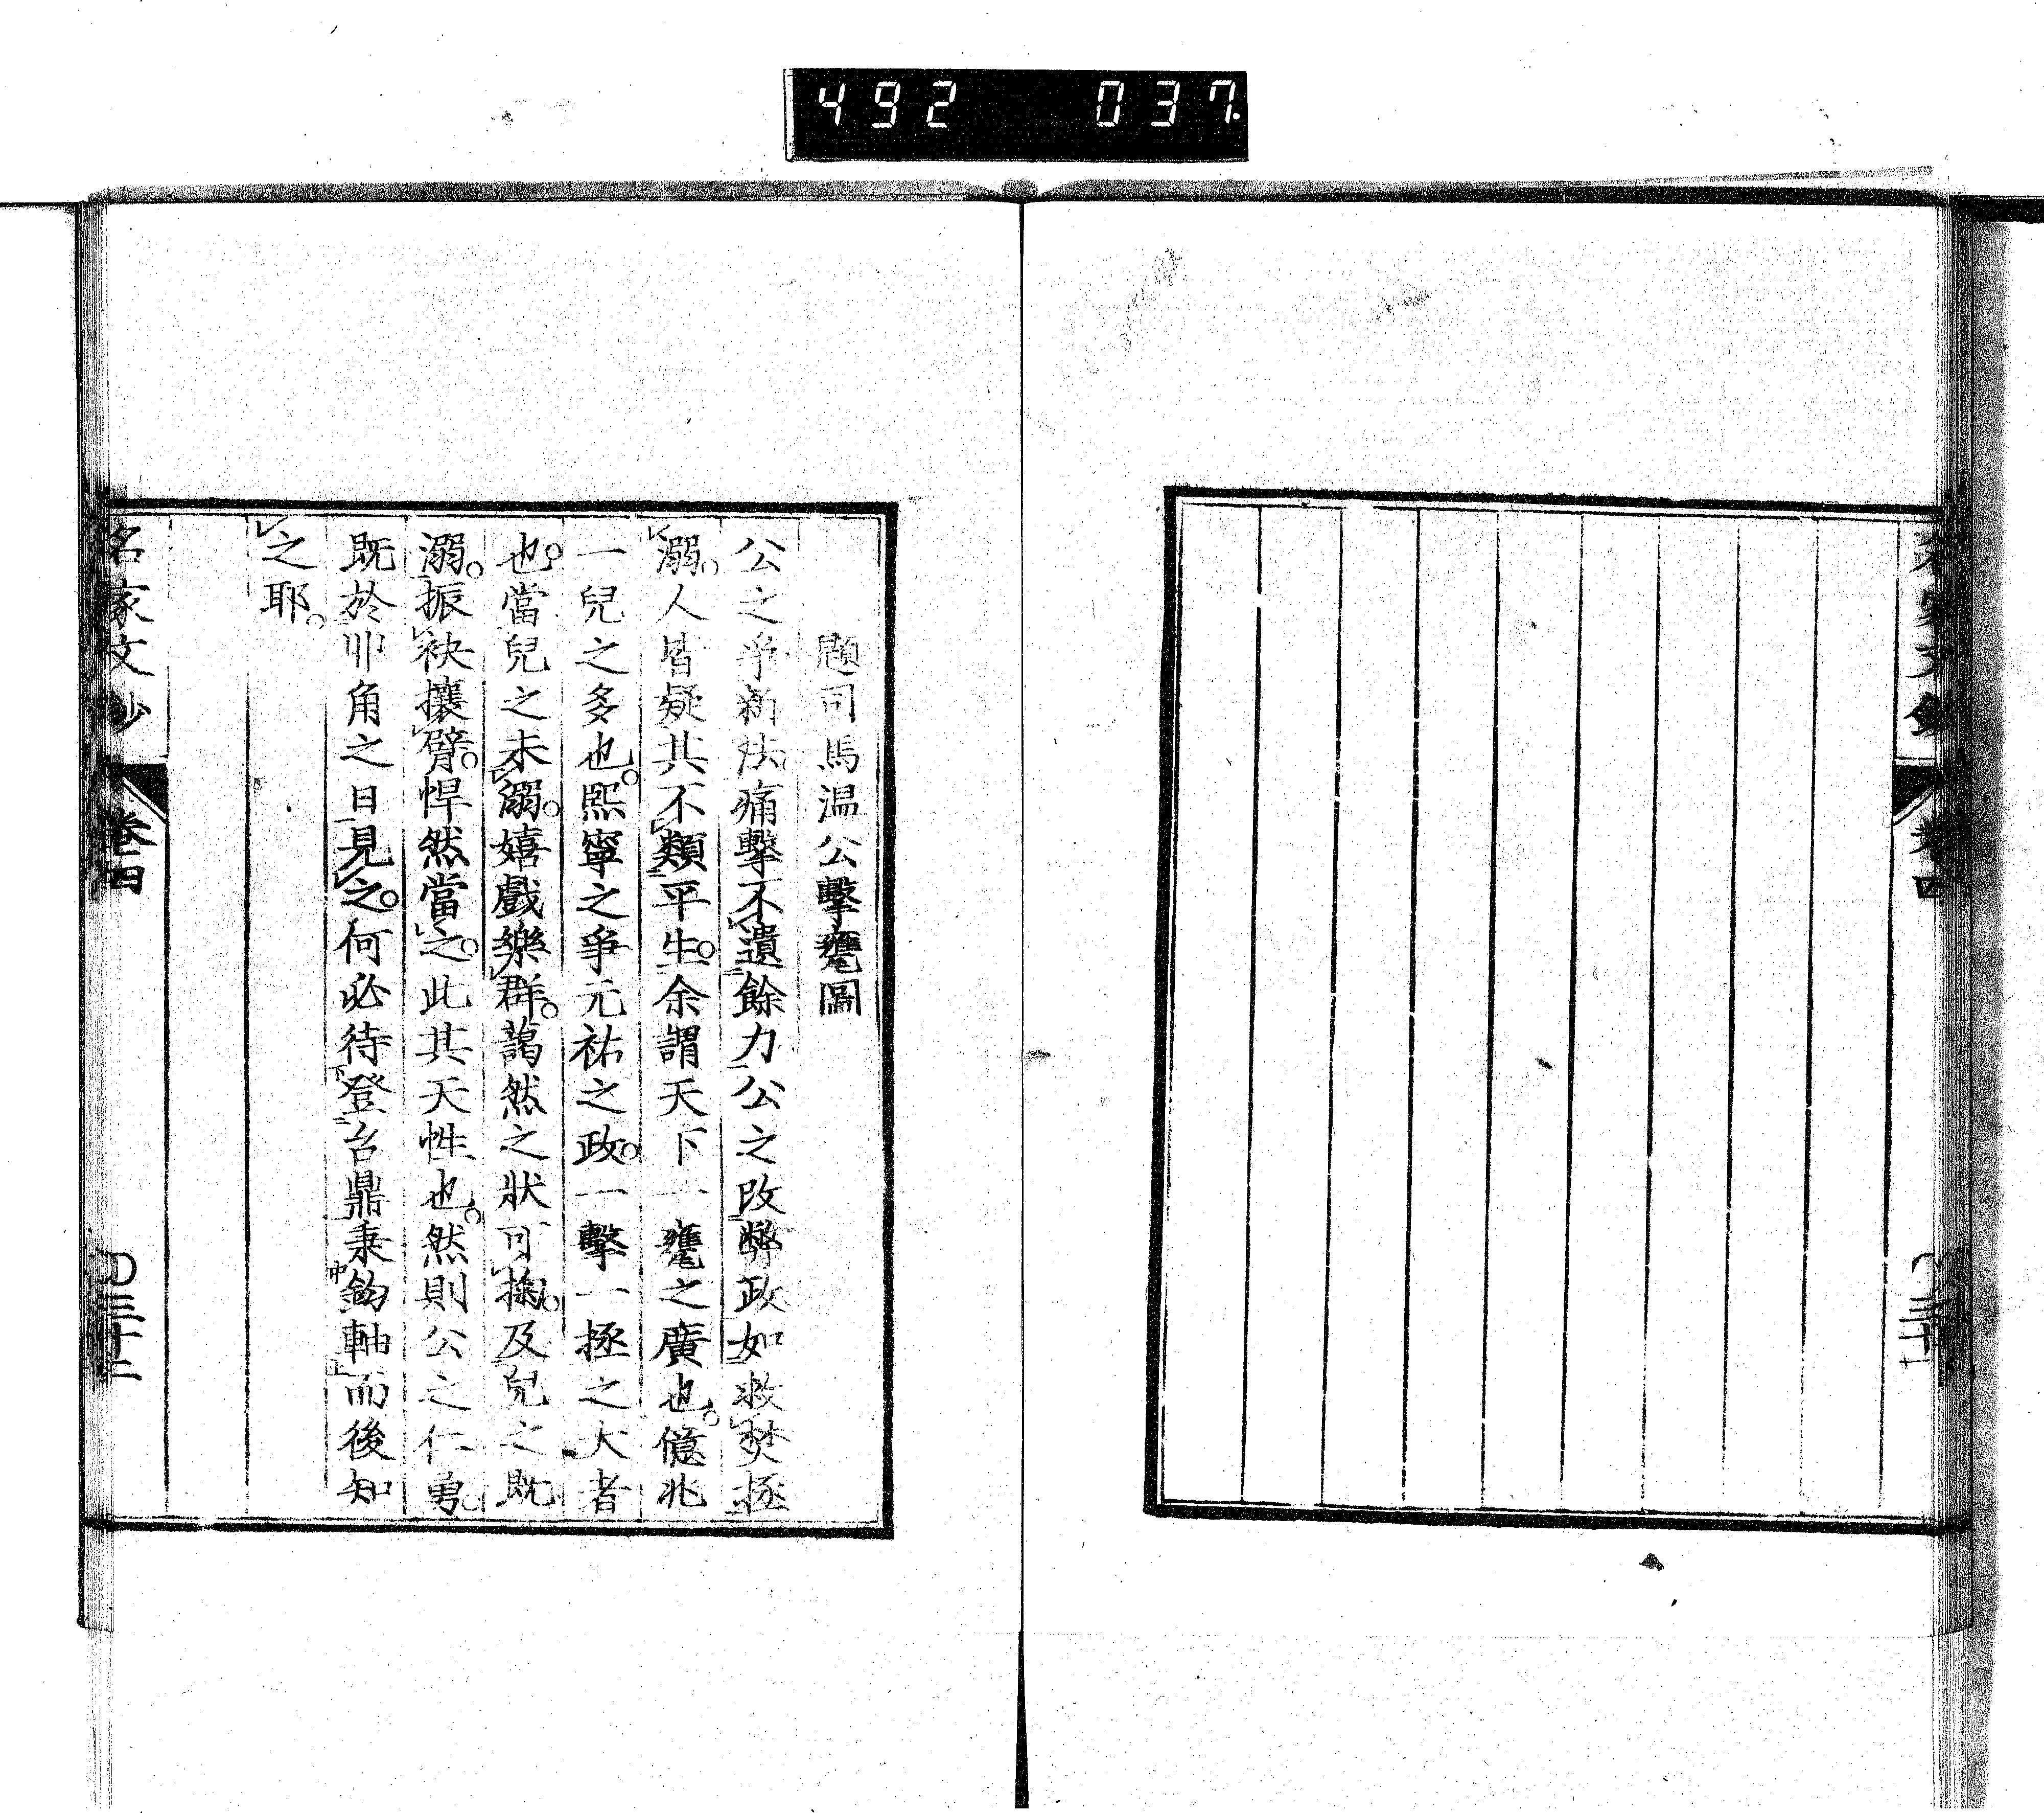 492 037
名家文鈔 卷四 三十一
題司馬温公擊甕圖
公之爭新法痛擊不遺餘力公之改弊政如救焚拯
溺。人皆疑其不類平生。余謂天下一甕之廣也。億兆
一兒之多也。熙寧之爭元祐之政。一擊一拯之大者
也。當兒之未溺。嬉戲樂群。藹然之狀可掬。及兒之既
溺。振袂攘臂。悍然當之。此其天性也。然則公之仁勇。
既於丱角之日見之。何必待登台鼎秉鈞軸而後知
之耶。
名家文鈔 卷四 三十二